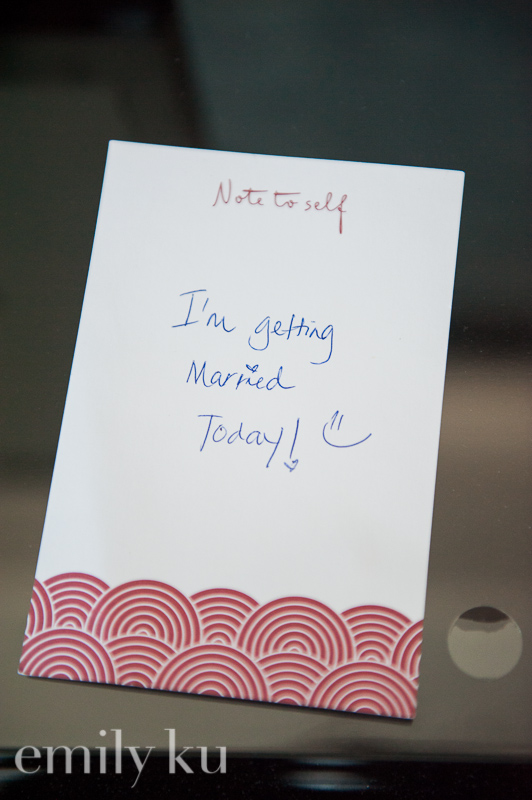 Note to self
I'm getting
Married
Today! :)
emily ku